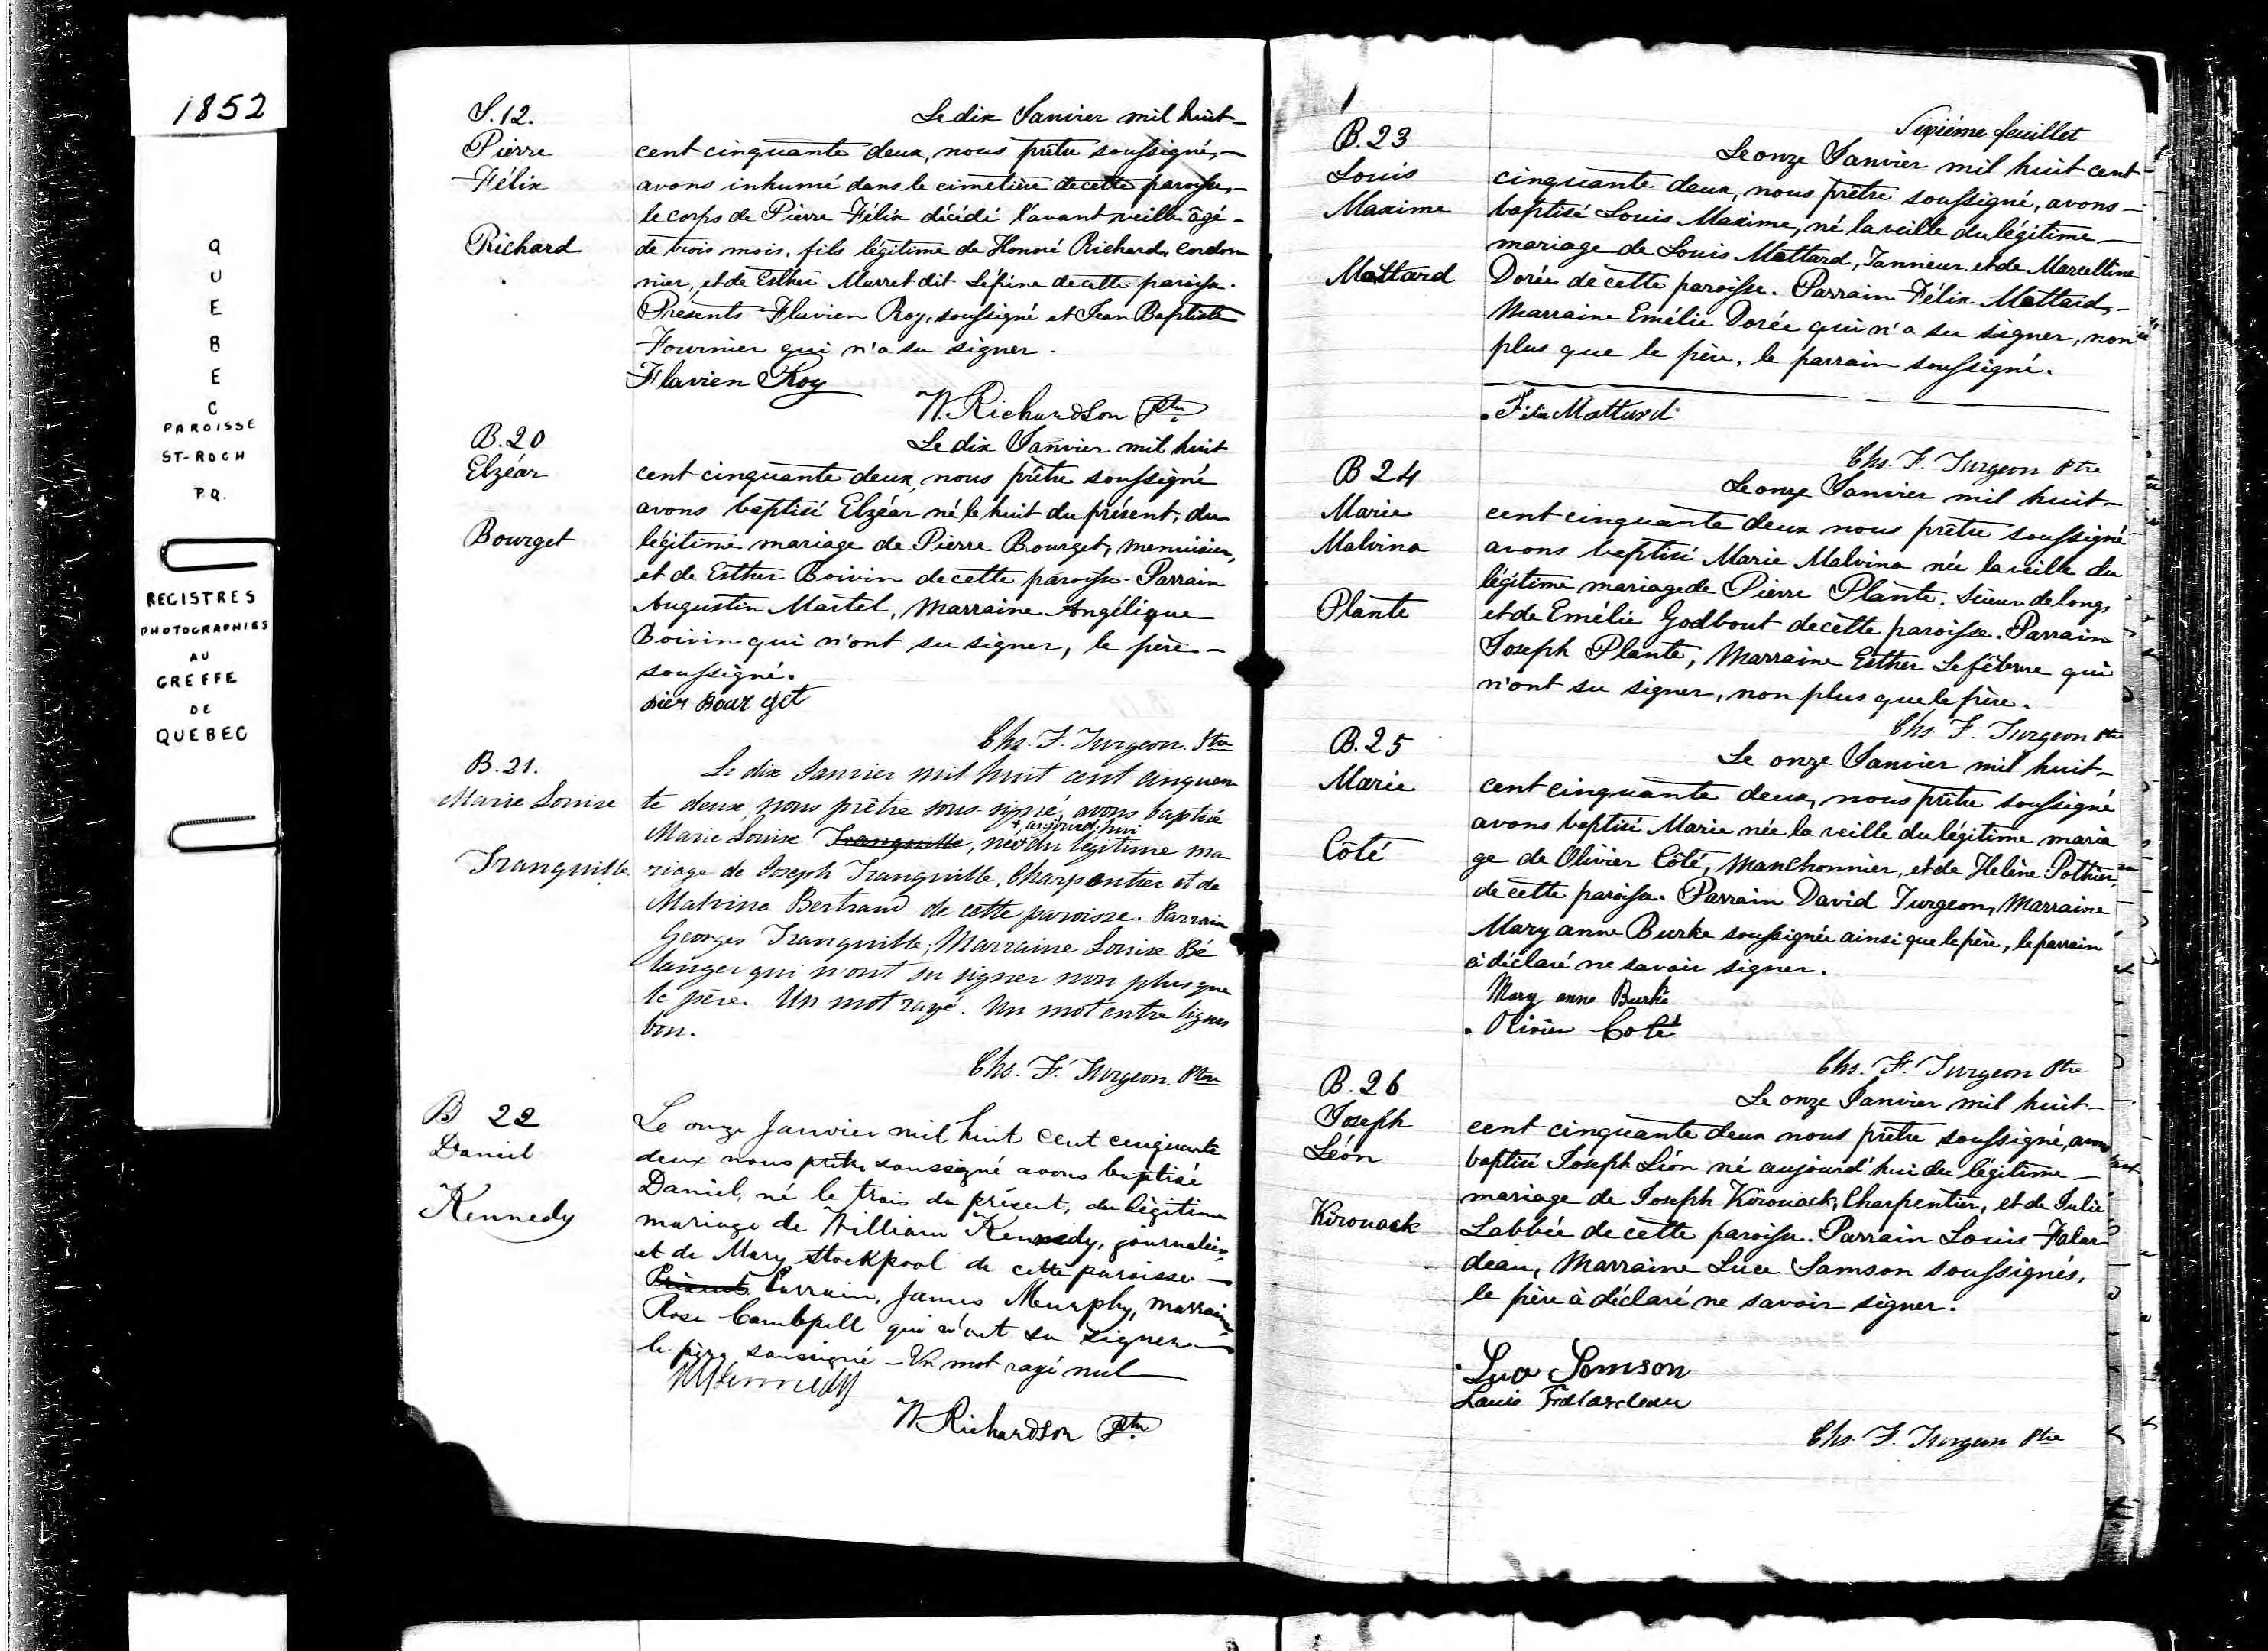 1852
QUEBEC
PAROISSE
ST-ROCH
P.Q.
REGISTRES
PHOTOGRAPHIES
AU
GREFFE
DE
QUEBEC
S. 12.
Pierre
Félix
Richard
Le dix Janvier mil huit-
cent cinquante deux, nous prêtre soussigné,-
avons inhumé dans le cimetière de cette paroisse,-
le corps de Pierre Félix décédé l'avant veille âgé-
de trois mois, fils légitime de Honoré Richard, cordon
nier, et de Esther Marret dit Lépine de cette paroisse.
Présents Flavien Roy, soussigné et Jean Baptiste
Fournier qui n'a su signer.
Flavien Roy
N. Richardson Ptre
B. 20
Elzéar
Bourget
Le dix Janvier mil huit
cent cinquante deux, nous prêtre soussigné
avons baptisé Elzéar né le huit du présent, du
légitime mariage de Pierre Bourget, menuisier,
et de Esther Boivin de cette paroisse. Parrain
Augustin Martel, Marraine Angélique
Boivin qui n'ont su signer, le père-
soussigné.
pier Bourget
Chs. F. Turgeon. Ptre
B. 21.
Marie Louise
Tranquille
Le dix Janvier mil huit cent cinquan
te deux, nous prêtre sous signé, avons baptisé
+ aujourd'hui
Marie Louise Tranquille, née + du légitime ma
riage de Joseph Tranquille, Charpentier et de
Malvina Bertrand de cette paroisse. Parrain
Georges Tranquille, Marraine Louise Bé
langer qui n'ont su signer non plus que
le père. Un mot rayé. Un mot entre lignes
bon.
Chs. F. Turgeon. Ptre
B 22
Daniel
Kennedy
Le onze Janvier mil huit cent cinquante
deux nous prêtre soussigné avons baptisé
Daniel, né le trois du présent, du légitime
mariage de William Kennedy, journalier,
et de Mary Stockpool de cette paroisse-
Présents Parrain, James Murphy, Marraine,
Rose Cambpell qui n'ont su signer-
le père soussigné - Un mot rayé nul
W Kennedy
N. Richardson Ptre
Sixième feuillet
B. 23
Louis
Maxime
Mattard
Le onze Janvier mil huit cent-
cinquante deux, nous prêtre soussigné, avons-
baptisé Louis Maxime, né la veille du légitime-
mariage de Louis Mattard, Tanneur et de Marcelline
Dorée de cette paroisse. Parrain Félix Mattard,-
Marraine Emélie Dorée qui n'a su signer, non
plus que le père, le parrain soussigné.
Félix Mattard
Chs. F. Turgeon Ptre
B 24
Marie
Malvina
Plante
Le onze Janvier mil huit-
cent cinquante deux nous prêtre soussigné
avons baptisé Marie Malvina née la veille du
légitime mariage de Pierre Plante, Scieur de long,
et de Emélie Godbout de cette paroisse. Parrain
Joseph Plante, Marraine Esther Lefebvre qui
n'ont su signer, non plus que le père.
Chs. F. Turgeon Ptre
B. 25
Marie
Côté
Le onze Janvier mil huit-
cent cinquante deux, nous prêtre soussigné
avons baptisé Marie née la veille du légitime maria
ge de Olivier Côté, Manchonnier, et de Helène Pothier,
de cette paroisse. Parrain David Turgeon, Marraine
Mary anne Burke soussignée ainsi que le père, le parrain
à déclaré ne savoir signer.
Mary anne Burke
Olivier Coté
Chs. F. Turgeon Ptre
B. 26
Joseph
Léon
Kirouack
Le onze Janvier mil huit-
cent cinquante deux nous prêtre soussigné, avons
baptisé Joseph Léon né aujourd'hui du légitime-
mariage de Joseph Kirouack, Charpentier, et de Julie
Labbée de cette paroisse. Parrain Louis Falar
deau, Marraine Luce Samson soussignés,
le père à déclaré ne savoir signer.
Luce Samson
Louis Falardeau
Chs. F. Turgeon Ptre